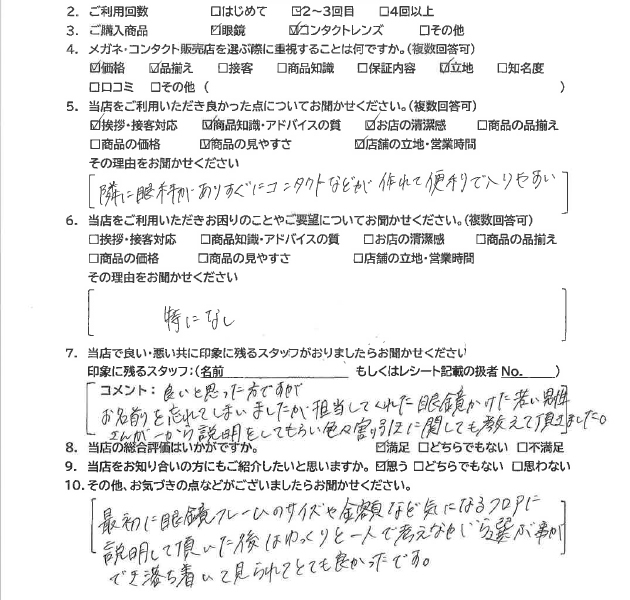 2. ご利用回数 □はじめて ☑2～3回目 □4回以上
3. ご購入商品 ☑眼鏡 ☑コンタクトレンズ □その他
4. メガネ・コンタクト販売店を選ぶ際に重視することは何ですか。(複数回答可)
☑価格 ☑品揃え □接客 □商品知識 □保証内容 ☑立地 □知名度
□口コミ □その他 ( )
5. 当店をご利用いただき良かった点についてお聞かせください。(複数回答可)
☑挨拶・接客対応 ☑商品知識・アドバイスの質 ☑お店の清潔感 □商品の品揃え
□商品の価格 ☑商品の見やすさ ☑店舗の立地・営業時間
その理由をお聞かせください
隣に眼科がありすぐにコンタクトなどが作れて便利で入りやすい
6. 当店をご利用いただきお困りのことやご要望についてお聞かせください。(複数回答可)
□挨拶・接客対応 □商品知識・アドバイスの質 □お店の清潔感 □商品の品揃え
□商品の価格 □商品の見やすさ □店舗の立地・営業時間
その理由をお聞かせください
特になし
7. 当店で良い・悪い共に印象に残るスタッフがおりましたらお聞かせください
印象に残るスタッフ:(名前 もしくはレシート記載の扱者 No. )
コメント: 良いと思った方ですが
お名前を忘れてしまいましたが担当してくれた眼鏡かけた若い男性
さんが一から説明をしてもらい色々割引に関しても教えて頂きました。
8. 当店の総合評価はいかがですか。 ☑満足 □どちらでもない □不満足
9. 当店をお知り合いの方にもご紹介したいと思いますか。 ☑思う □どちらでもない □思わない
10. その他、お気づきの点などがございましたらお聞かせください。
最初に眼鏡フレームのサイズや金額など気になるフロアに
説明して頂いた後はゆっくりと一人で考えながら選ぶ事が
でき落ち着いて見られてとても良かったです。